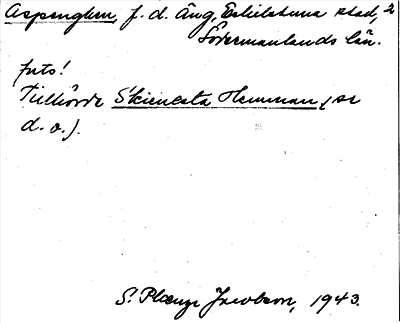 Aspenglum, f.d. Äng, Eskilstuna stad, 2
Södermanlands län.
foto!
Tillhörde Skiensta Hemman, (se
d. o.).
S. Jacobson, 1943.